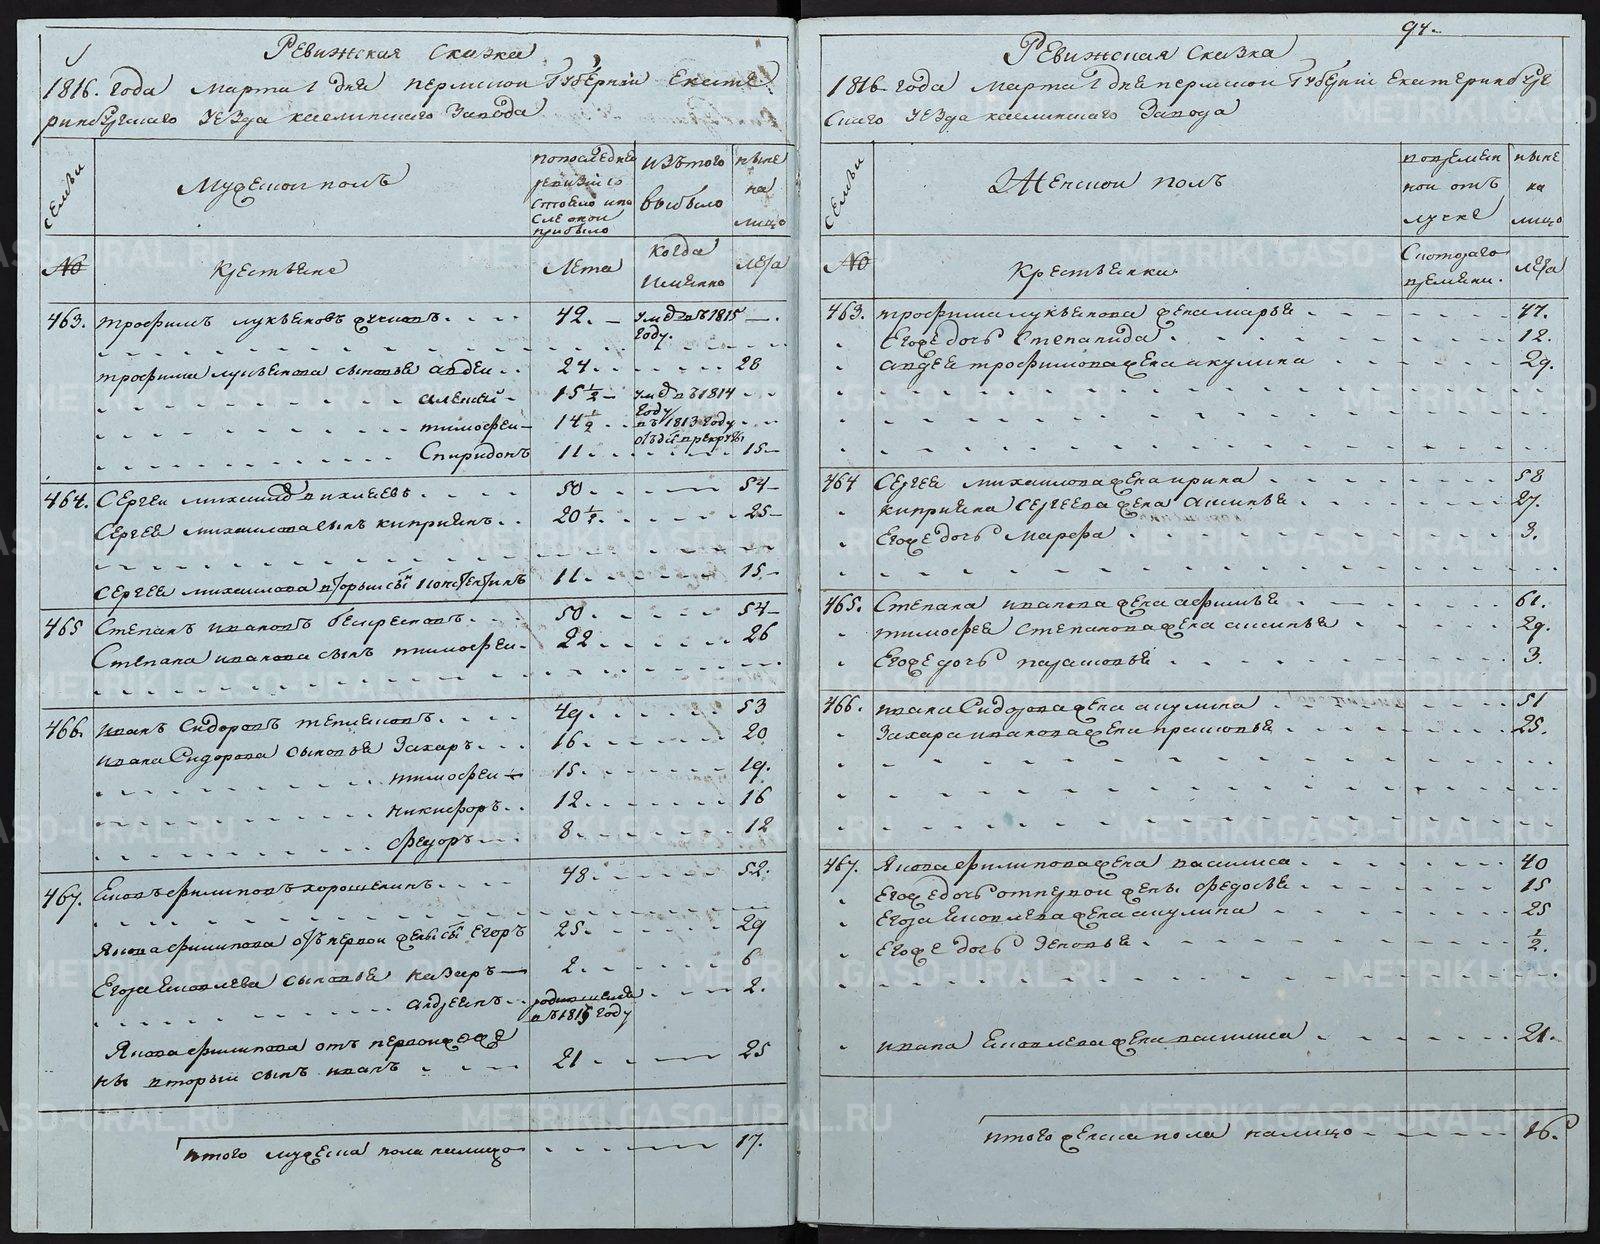 Ревижская Сказка
1816. года марта 1 дня пермскои Губернiи Екате
ринбургскаго Уезда каслинскаго Завода
семьи
Мужескои полъ
попоследнеи ревизiи состояло ипосле онои прибыло
изътого выбыло
ныне на лицо
№
Крестьяне
Лета
когда имянно
лета
463. трофимъ лукьяновъ 42. умре въ 1815 году.
трофима лукьянова сыновья андреи 24 28
алексеи 15 1/2 умре въ 1814 году
тимофеи 14 1/2 въ 1813 году отъданъ в рекруты
Спиридонъ 11 15
464. Сергеи михаиловъ 50 54
Сергея михаилова сынъ киприянъ 20 1/2 25
Сергея михаилова вторыи сынъ константинъ 11 15
465 Степанъ ивановъ 50 54
Степана иванова сынъ тимофеи 22 26
466. иванъ Сидоровъ 49 53
ивана Сидорова сыновья Захаръ 16 20
тимофеи 15. 19.
никифоръ 12 16
федоръ 8 12
467. Яковъ филиповъ хорошенинъ 48 52.
Якова филипова отъ первои жены сынъ Егоръ 25. 29
Егора Яковлева сыновья назаръ 2. 6
андреянъ родился въ 1815 году 2.
Якова филипова отъ первои же
ны вторыи сынъ иванъ 21 25
итого мужеска пола налицо 17.
94.
Ревижская Сказка
1816 года марта 1 дня пермскои Губернiи Екатеринбург
скаго Уезда каслинскаго Завода
семьи
Женскои полъ
во временнои отълучке
ныне на лицо
№
Крестьянки
Скотораго времени.
лета
463. трофима лукьянова жена марья 47.
Егоже дочь Степанида 12.
андрея трофимова жена акулина 29.
464 Сергея михаилова жена ирина 58
киприяна Сергеева жена аксинья 27.
Егоже дочь марфа 3.
465. Степана иванова жена афимья 61.
тимофея Степанова жена аксинья 29.
Егоже дочь парасковья 3.
466. ивана Сидорова жена акулина 51
Захара иванова жена прасковья 25.
467. Якова филипова жена василиса 40
Егоже дочь отпервои жены федосья 15
Егора Яковлева жена акулина 25
Егоже дочь 1/2.
ивана Яковлева жена василиса 21.
итого женска пола налицо 16.